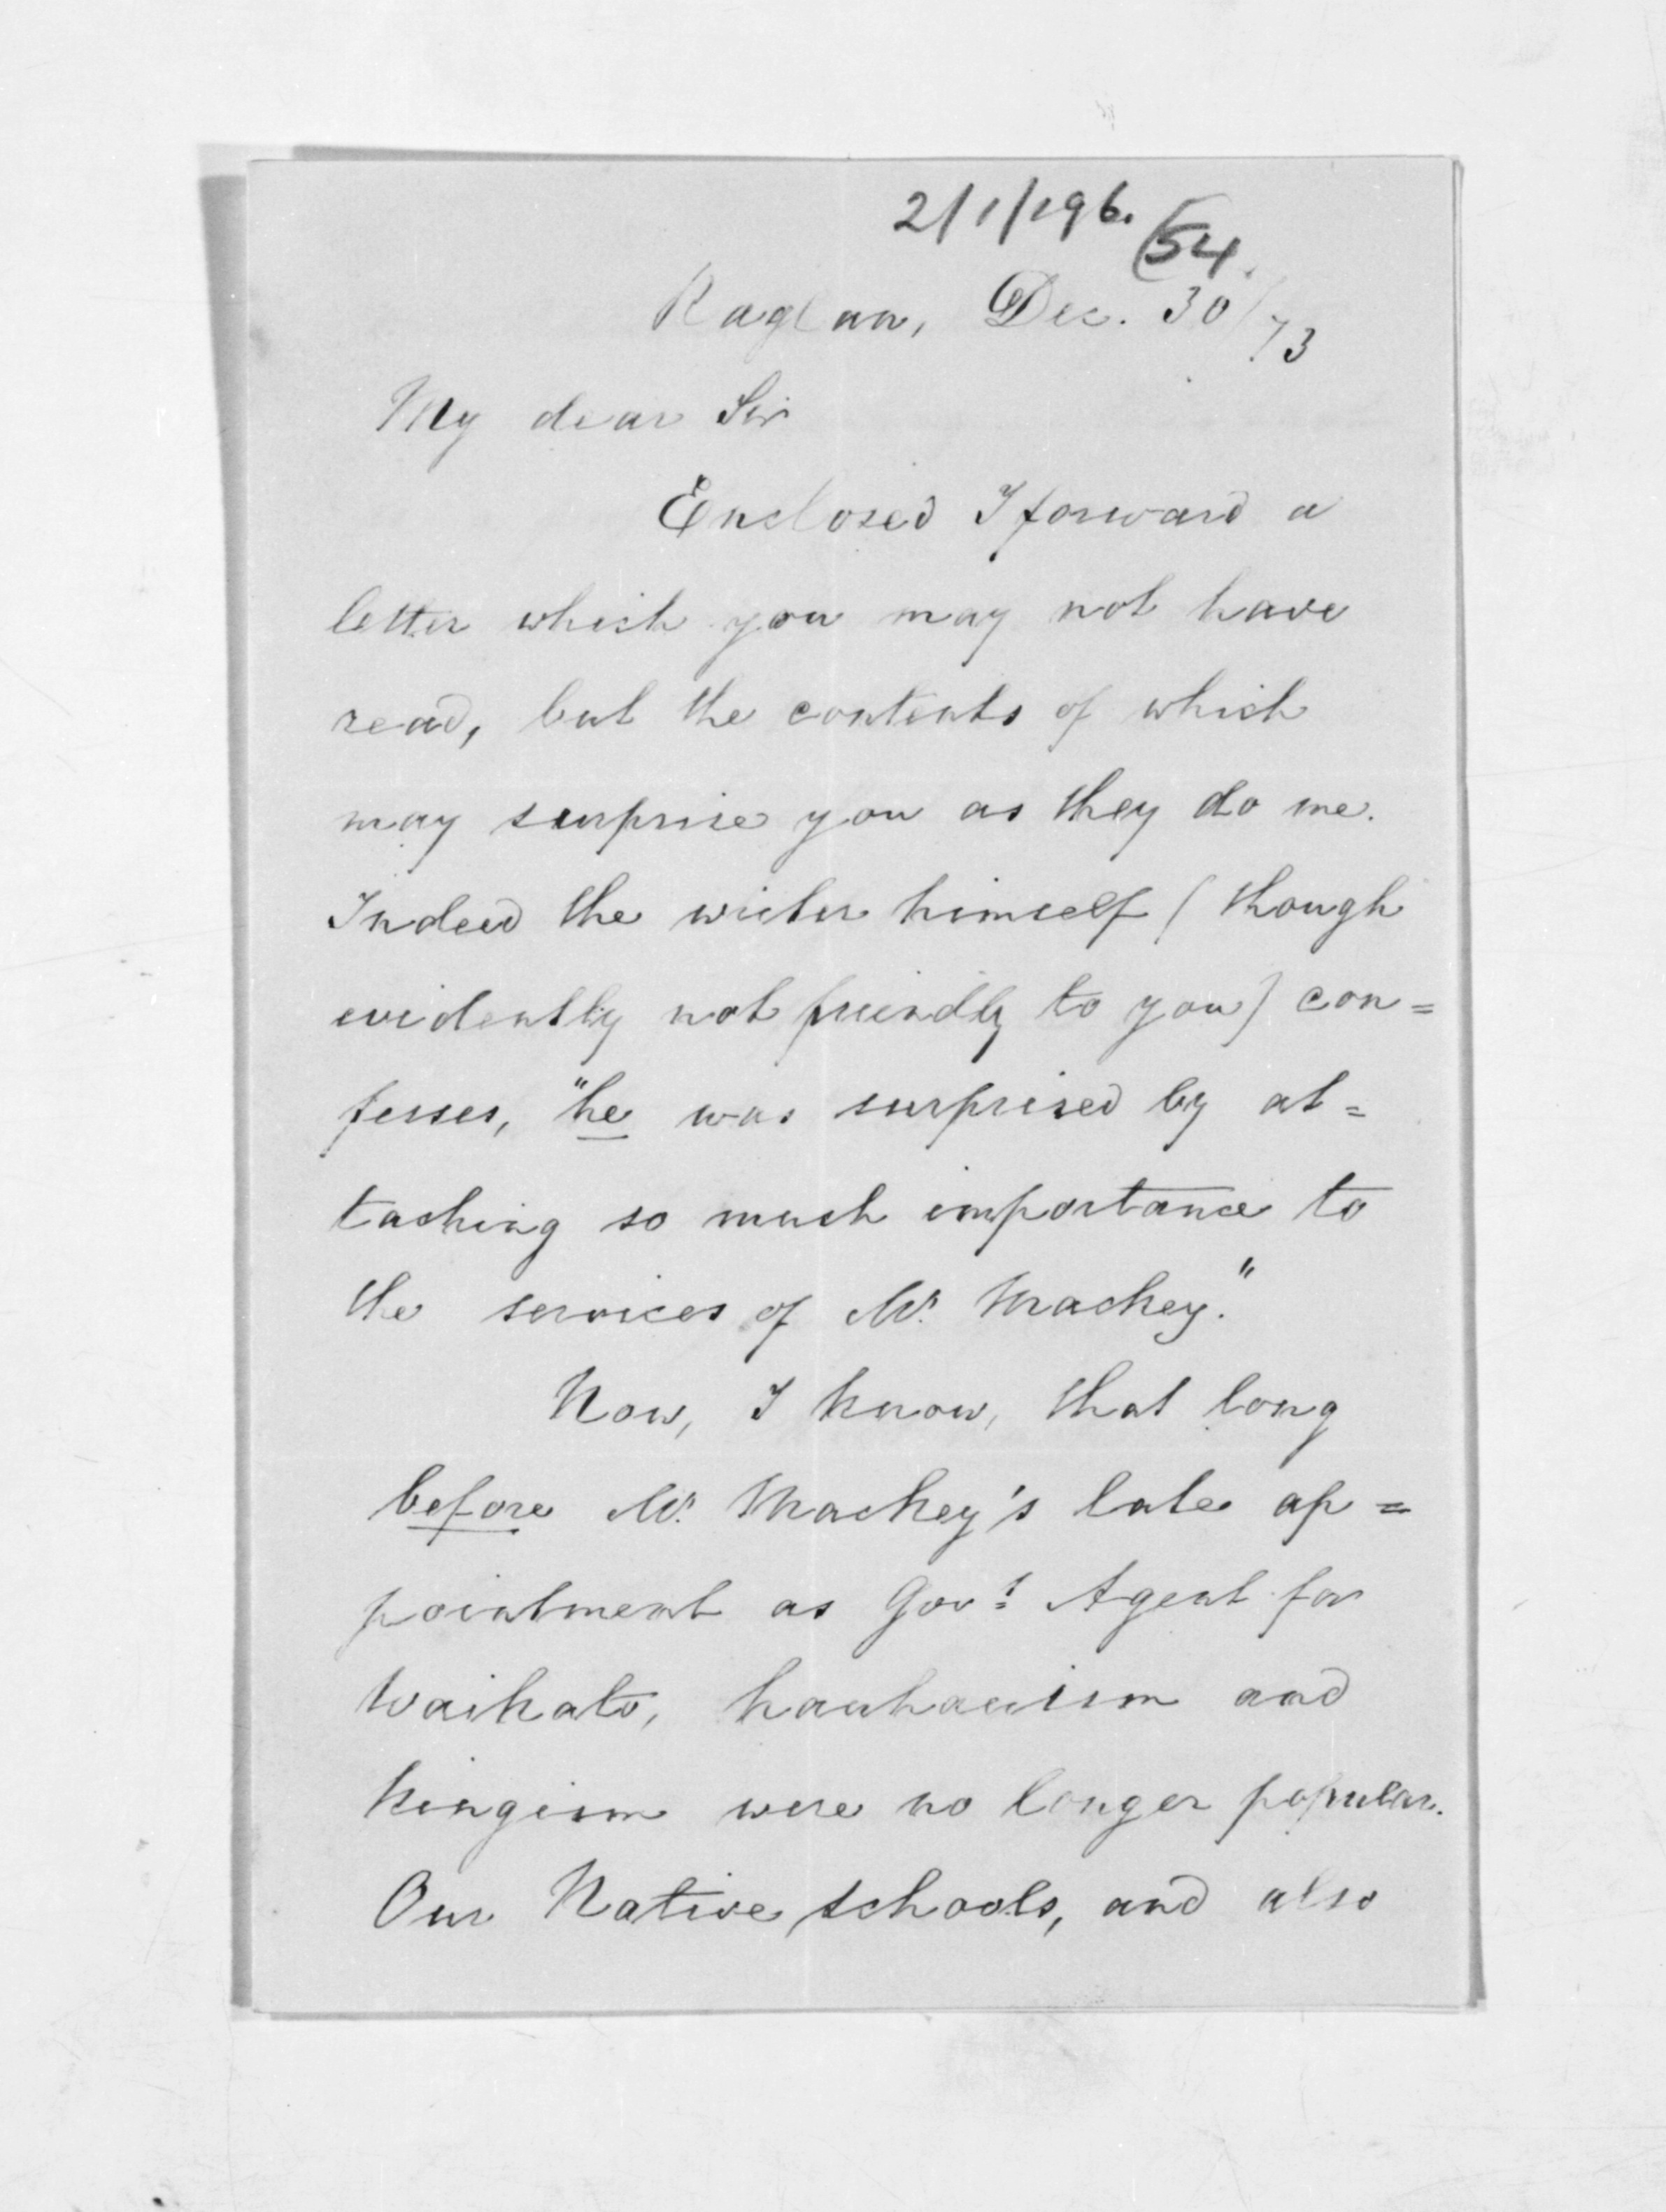 2/1/196.
54.
Raglan, Dec. 30/73
My dear Sir
Enclosed I forward a
letter which you may not have
read, but the contents of which
may surprise you as they do me.
Indeed the writer himself (though
evidently not friendly to you) con=
fesses, "he was surprised by at=
taching so much importance to
the services of Mr. Mackey."
Now, I know, that long
before Mr. Mackey's late ap=
pointment as Govt. Agent for
Waikato, hauhauism and
Kingism were no longer popular.
Our Native schools, and also